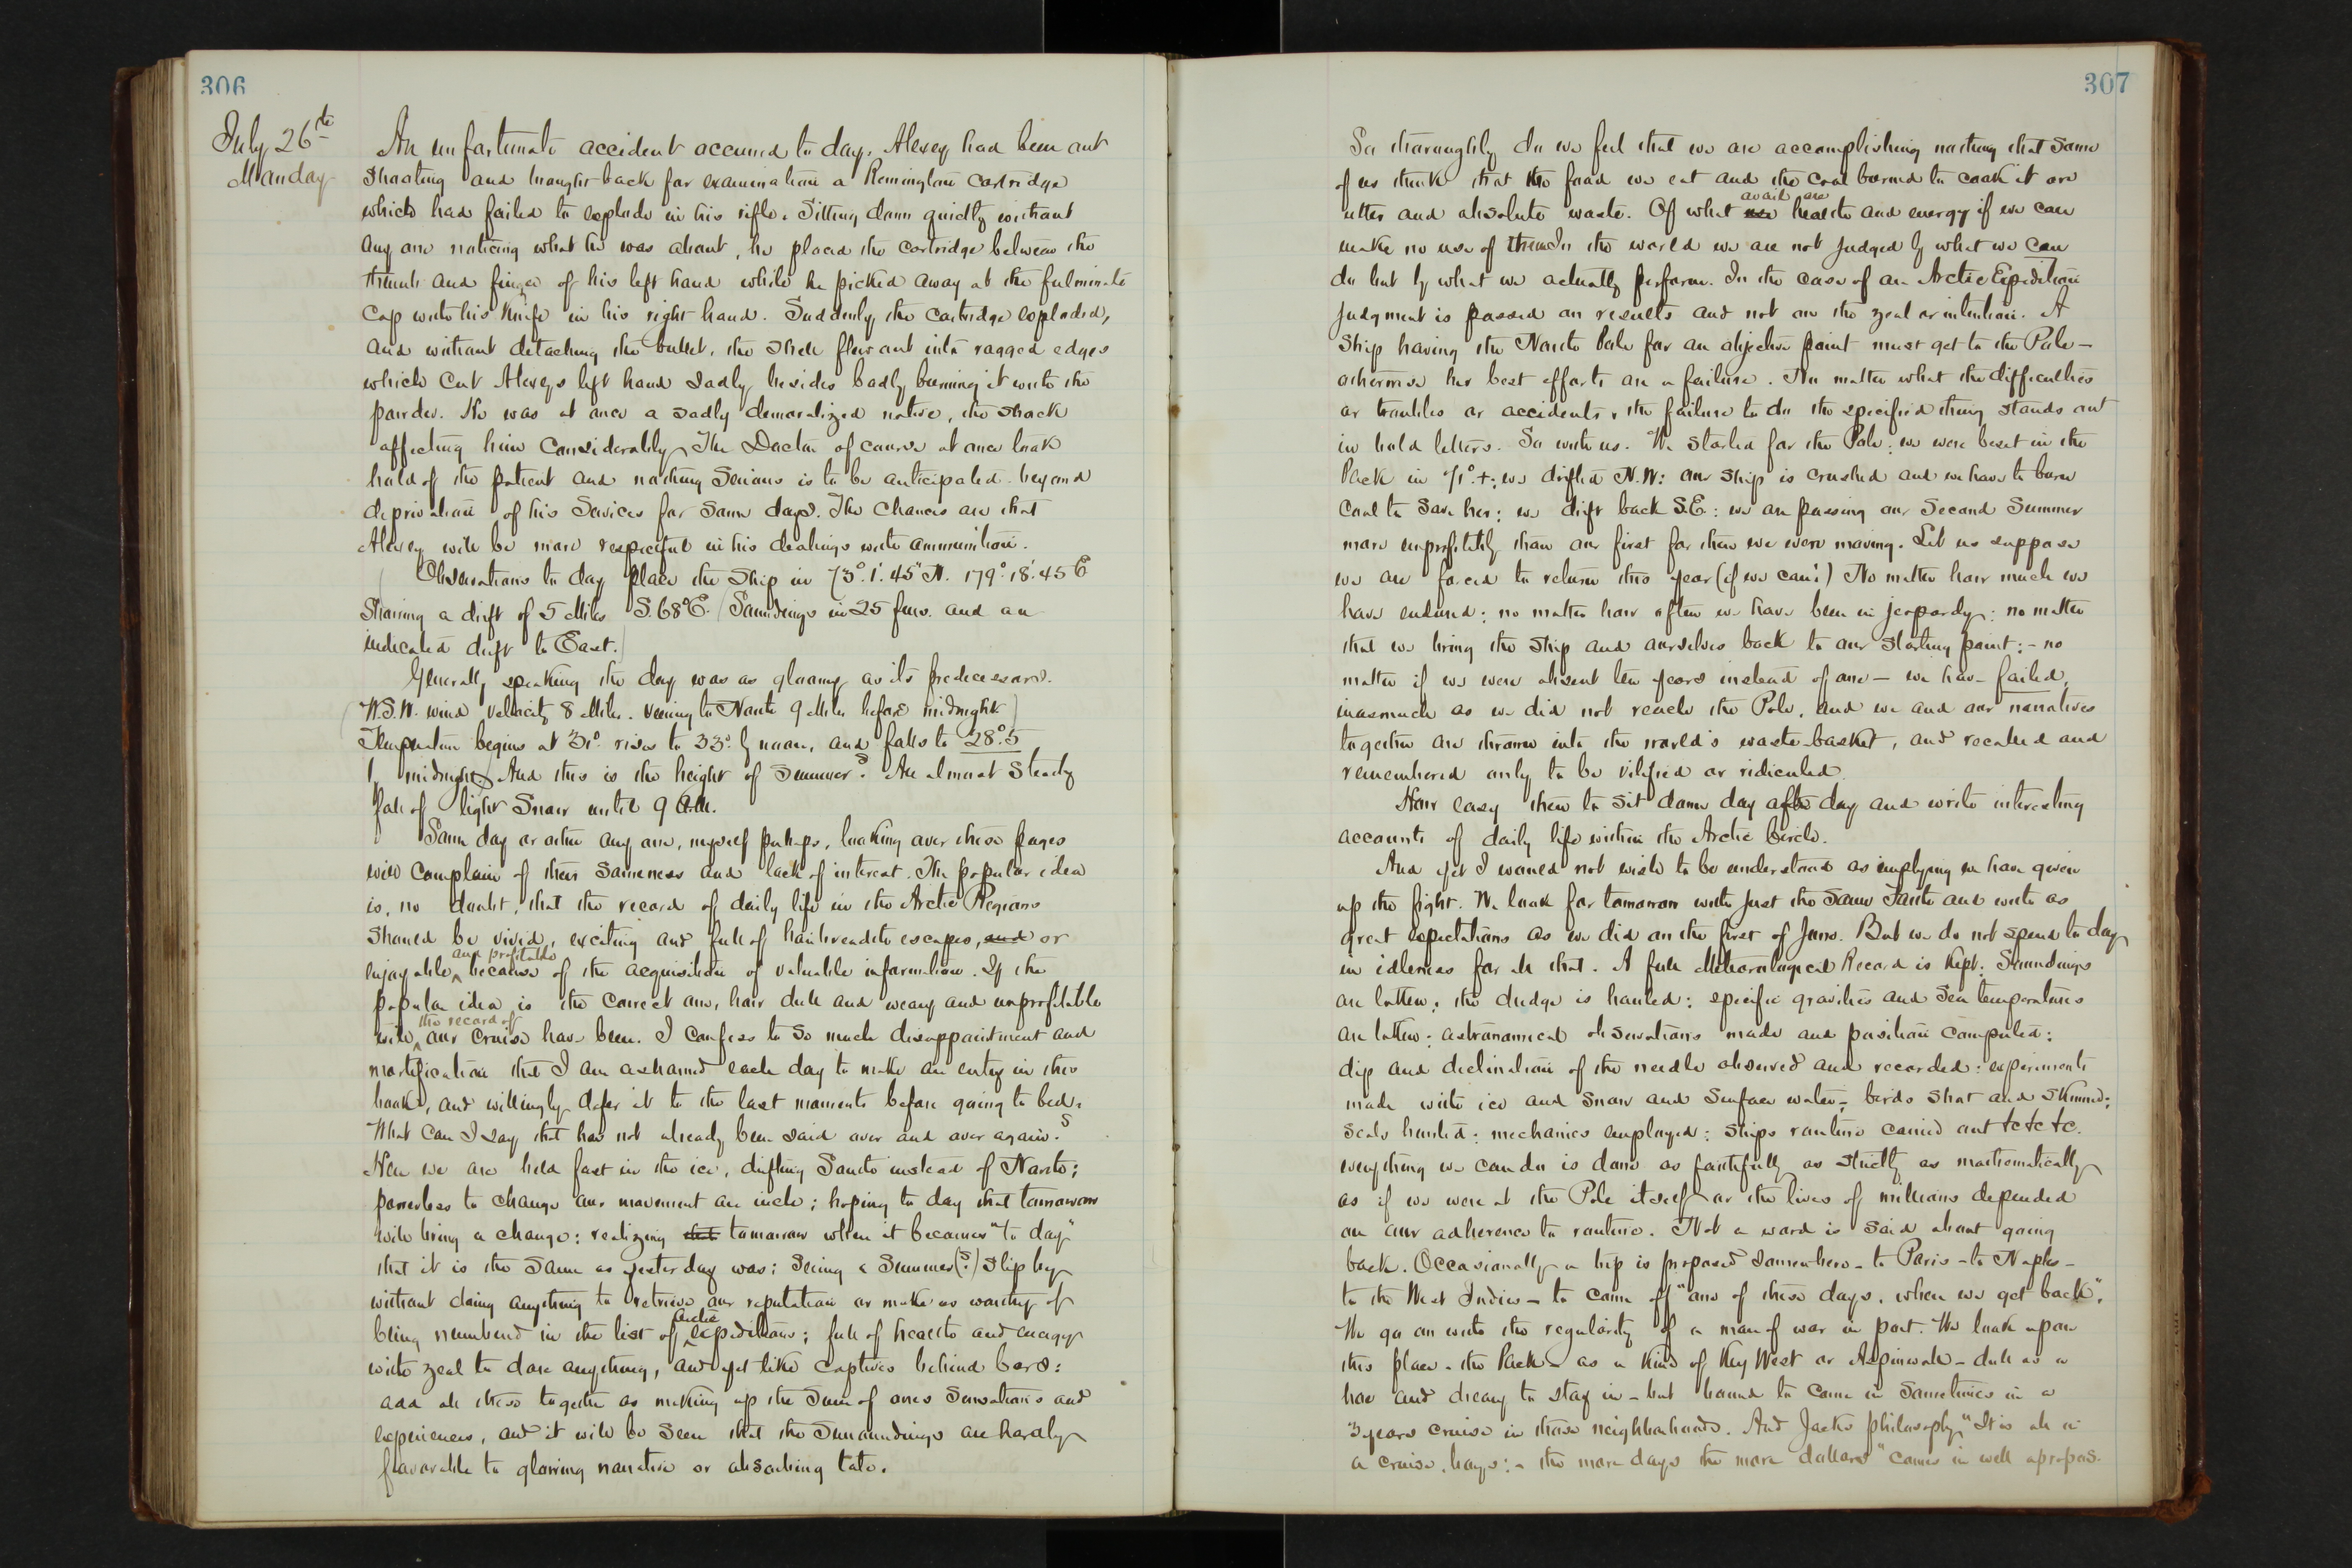 306
July 26th
Monday
An unfortunate accident occurred to day. Alexey had been out
shooting and brought back for examination a Remington cartridge
which had failed to explode in his rifle. Sitting down quietly without
any one noticing what he was about, he placed the cartridge between the
thumb and finger of his left hand while he picked away at the fulminate
cap with his knife in his right hand. Suddenly the cartridge exploded,
and without detaching the bullet, the shell flew out into ragged edges
which cut Alexeys left hand sadly besides badly burning it with the
powder. He was at once a sadly demoralized native, the shock
affecting him considerably. The Doctor of course at once took
hold of the patient and nothing serious is to be anticipated beyond
deprivation of his services for some days. The chances are that
Alexey will be more respectful in his dealings with ammunition.
Observations to day place the Ship in 73°. 1'. 45" N. 179°. 18'. 45 E
showing a drift of 5 Miles S. 68° E. (Soundings in 25 fms. and an
indicated drift to East.)
Generally speaking the day was as gloomy as its predecessors.
(W.S.W. wind velocity 8 Miles. veering to North 9 Miles before midnight)
Temperature begins at 31°. rises to 33°. by noon, and falls to 28°.5
by midnight. And this is the height of Summer? An almost steady
fall of light Snow until 9 A.M.
Some day or other any one, myself perhaps, looking over these pages
will complain of their sameness and lack of interest. The popular idea
is, no doubt, that the record of daily life in the Arctic Regions
should be vivid, exciting and full of hairbreadth escapes, and or
and profitable
enjoyable because of the acquisition of valuable information. If the
popular idea is the correct one, how dull and weary and unprofitable
the record of
will our cruise have been. I confess to so much disappointment and
mortification that I am ashamed each day to make an entry in this
book, and willingly defer it to the last moments before going to bed.
What can I say that has not already been said over and over again?
Here we are held fast in the ice, drifting South instead of North;
powerless to change our movement an inch; hoping to day that tomorrow
will bring a change: realizing that tomorrow when it becomes "to day"
that it is the same as yesterday was: seeing a Summer(?) slip by
without doing anything to retrieve our reputation or make us worthy of
Arctic
being numbered in the list of expeditions; full of health and energy
with zeal to dare anything, and yet like captives behind bars:
add all these together as making up the sum of ones sensations and
experiences, and it will be seen that the surroundings are hardly
favorable to glowing narrative or absorbing tale.
307
So thoroughly do we feel that we are accomplishing nothing that some
of us think that the food we eat and the coal burned to cook it are
avail are
utter and absolute waste. Of what use health and energy if we can
make no use of them. In the world we are not judged by what we can
do but by what we actually perform. In the case of an Arctic Expedition
judgment is passed on results and not on the zeal or intention. A
Ship having the North Pole for an objective point must get to the Pole –
otherwise her best efforts are a failure. No matter what the difficulties
or troubles or accidents, the failure to do the specified thing stands out
in bold letters. So with us. We started for the Pole: we were beset in the
Pack in 71°. +: we drifted N.W: our ship is crushed and we have to burn
coal to save her: we drift back S.E: we are passing our second Summer
more unprofitably than our first for then we were moving. Let us suppose
we are forced to return this year (if we can!) No matter how much we
have endured: no matter how often we have been in jeopardy: no matter
that we bring the ship and ourselves back to our starting point: - no
matter if we were absent ten years instead of one – we have failed,
inasmuch as we did not reach the Pole, and we and our narratives
together are thrown into the world's waste-basket, and recalled and
remembered only to be vilified or ridiculed.
How easy then to sit down day after day and write interesting
accounts of daily life within the Arctic Circle.
And yet I would not wish to be understood as implying we have given
up the fight. We look for tomorrow with just the same faith and with as
great expectations as we did on the first of June. But we do not spend to day
in idleness for all that. A full Meteorological Record is kept: Soundings
are taken: the dredge is hauled: specific gravities and sea temperatures
are taken: astronomical observations made and position computed:
dip and declination of the needle observed and recorded: experiments
made with ice and snow and surface water: birds shot and skinned:
seals hunted: mechanics employed: ships routine carried out &c &c &c.
everything we can do is done as faithfully as strictly as mathematically
as if we were at the Pole itself or the lives of millions depended
on our adherence to routine. Not a word is said about going
back. Occasionally a trip is proposed somewhere – to Paris – to Naples –
to the West Indies – to come off "one of these days, when we get back".
We go on with the regularity of a man of war in port. We look upon
this place – the Pack – as a kind of Key West or Aspinwall – dull as a
hoe and dreary to stay in – but bound to come in sometimes in a
3 years cruise in those neighborhoods. And Jacks philosophy "It is all in
a cruise, boys: - the more days the more dollars" comes in well apropos.